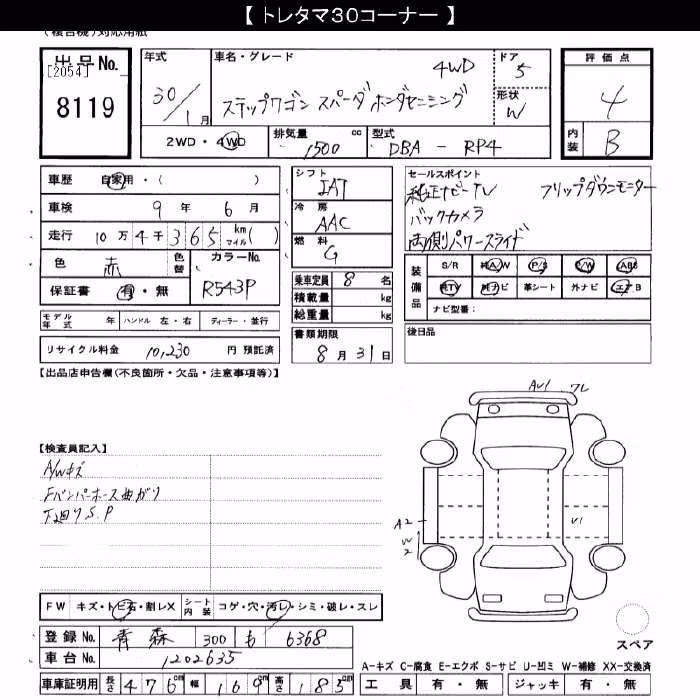 【 トレタマ30コーナー 】
(複合機)対応用紙
出品No. [2054] 8119
年式 30/1月
車名・グレード 4WD
ステップワゴン スパーダホンダセンシング
ドア 5
形状 W
評価点 4
内装 B
2WD・4WD 排気量 1500 cc 型式 DBA - RP4
車歴 自家用・( )
車検 9年 6月
走行 10万4千365 km マイル( )
色 赤 色替 カラーNo. R543P
保証書 有・無
モデル年式 年 ハンドル 左・右 ディーラー・並行
リサイクル料金 10,230 円 預託済
シフト IAT
冷房 AAC
燃料 G
乗車定員 8 名
積載量 kg
総重量 kg
書類期限
8月31日
セールスポイント
純正ナビーTV フリップダウンモニター
バックカメラ
両側パワースライド
装備品 S/R 純A/W P/S P/W ABS
純TV 純ナビ 革シート 外ナビ エアB
ナビ型番:
後日品
【出品店申告欄(不良箇所・欠品・注意事項等)】
【検査員記入】
A/Wキズ
Fバンパーホース曲がり
下廻りS.P
AU1 ワレ
A2
W2
U1
FW キズ・トビ石・割レX シート内装 コゲ・穴・汚レ・シミ・破レ・スレ
登録No. 青森 300 も 6368
車台No. 1202635
車庫証明用 長さ 476cm 幅 169cm 高さ 185cm
スペア
A-キズ C-腐食 E-エクボ S-サビ U-凹ミ W-補修 XX-交換済
工具 有・無 ジャッキ 有・無